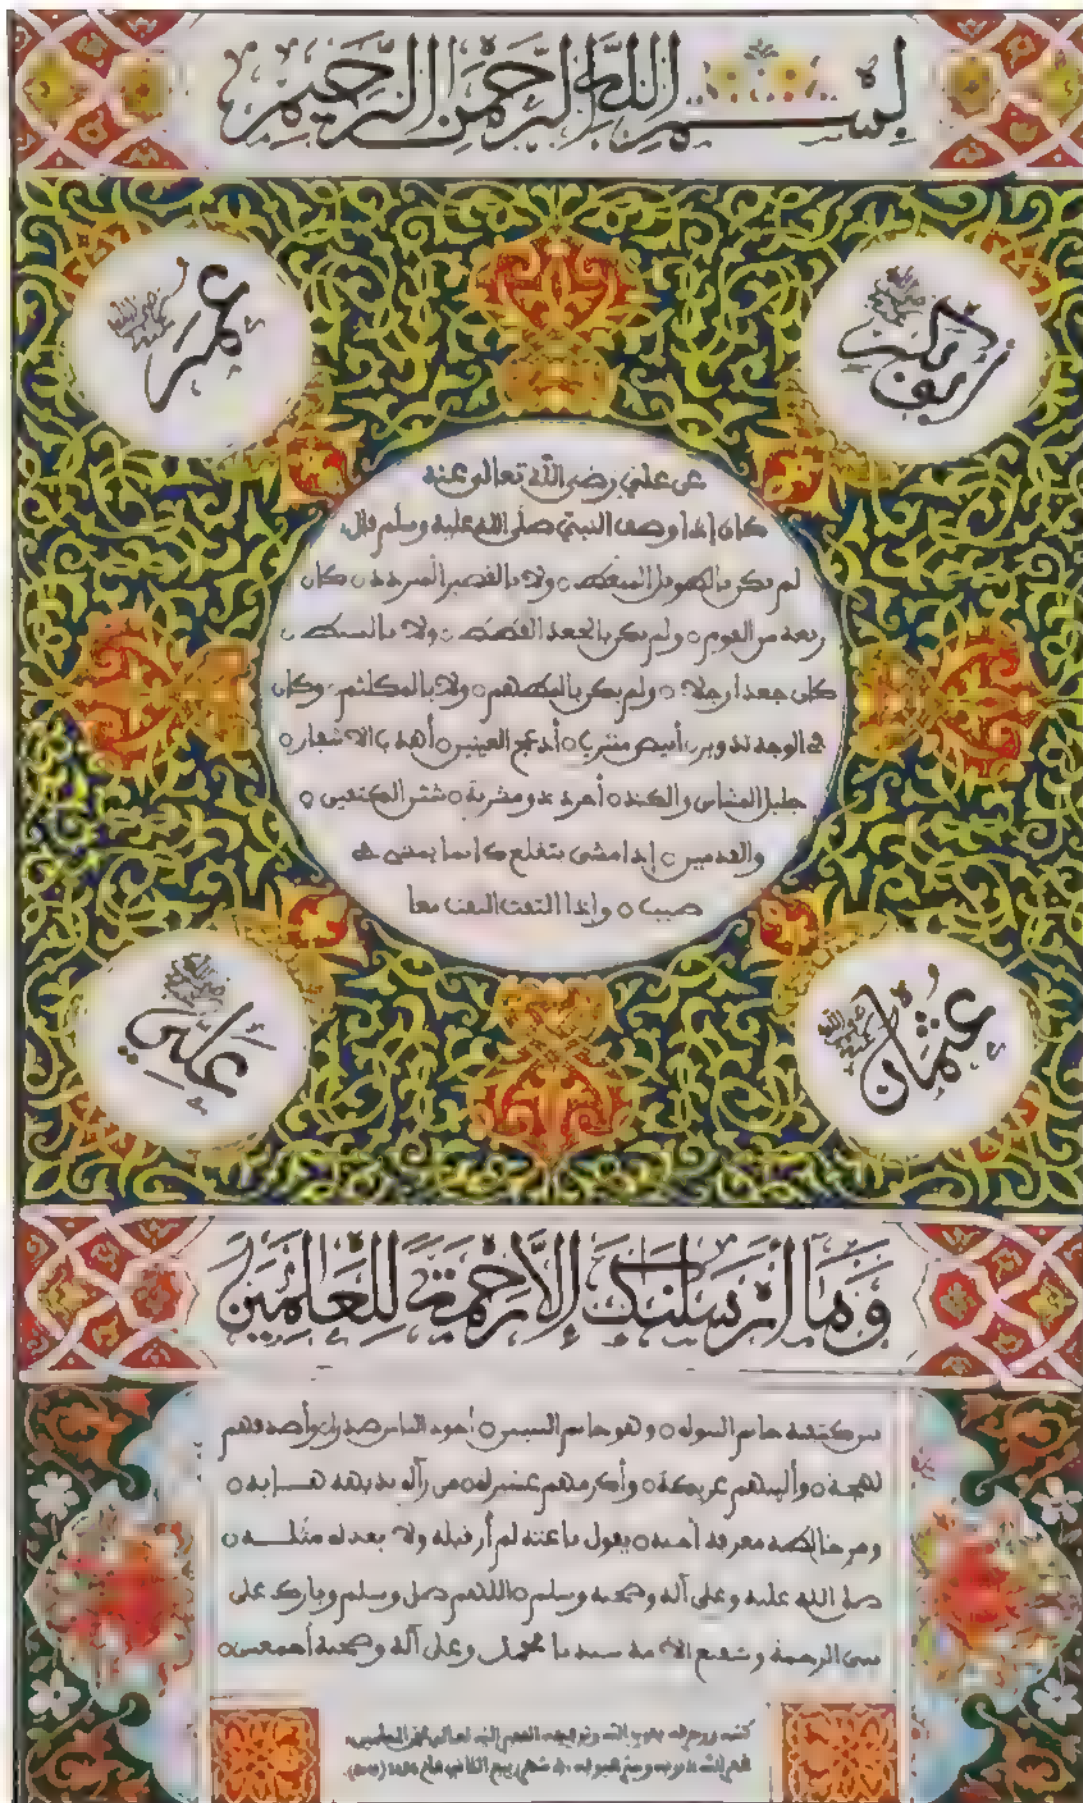 بسم الله الرحمن الرحيم
أبو بكر رضي الله عنه
عمر رضي الله عنه
عن علي رضي الله تعالى عنه
كان إذا وصف النبي صلى الله عليه وسلم قال
لم يكن بالطويل الممغط ولا بالقصير المتردد كان
ربعة من القوم ولم يكن بالجعد القطط ولا بالسبط
كان جعدا رجلا ولم يكن بالمطهم ولا بالمكلثم وكان
في الوجه تدوير أبيض مشربا أدعج العينين أهدب الاشفار
جليل المشاش والكتد أجرد ذو مسربة شثن الكفين
والقدمين إذا مشى يتقلع كأنما يمشي في
صبب وإذا التفت التفت معا
عثمان رضي الله عنه
علي رضي الله عنه
وَمَا أَرْسَلْنَكَ إِلَّا رَحْمَةً لِلْعَالَمِينَ
بين كتفيه خاتم النبوة وهو خاتم النبيين أجود الناس صدرا وأصدقهم
لهجة وألينهم عريكة وأكرمهم عشيرة من رآه بديهة هابه
ومن خالطه معرفة أحبه يقول ناعته لم أر قبله ولا بعده مثله
صلى الله عليه وعلى آله وصحبه وسلم اللهم صل وسلم وبارك على
نبي الرحمة وشفيع الأمة سيدنا محمد وعلى آله وصحبه أجمعين
كتبه وزخرفه بعون الله وتوفيقه الفقير إليه تعالى
شهر ربيع الثاني عام